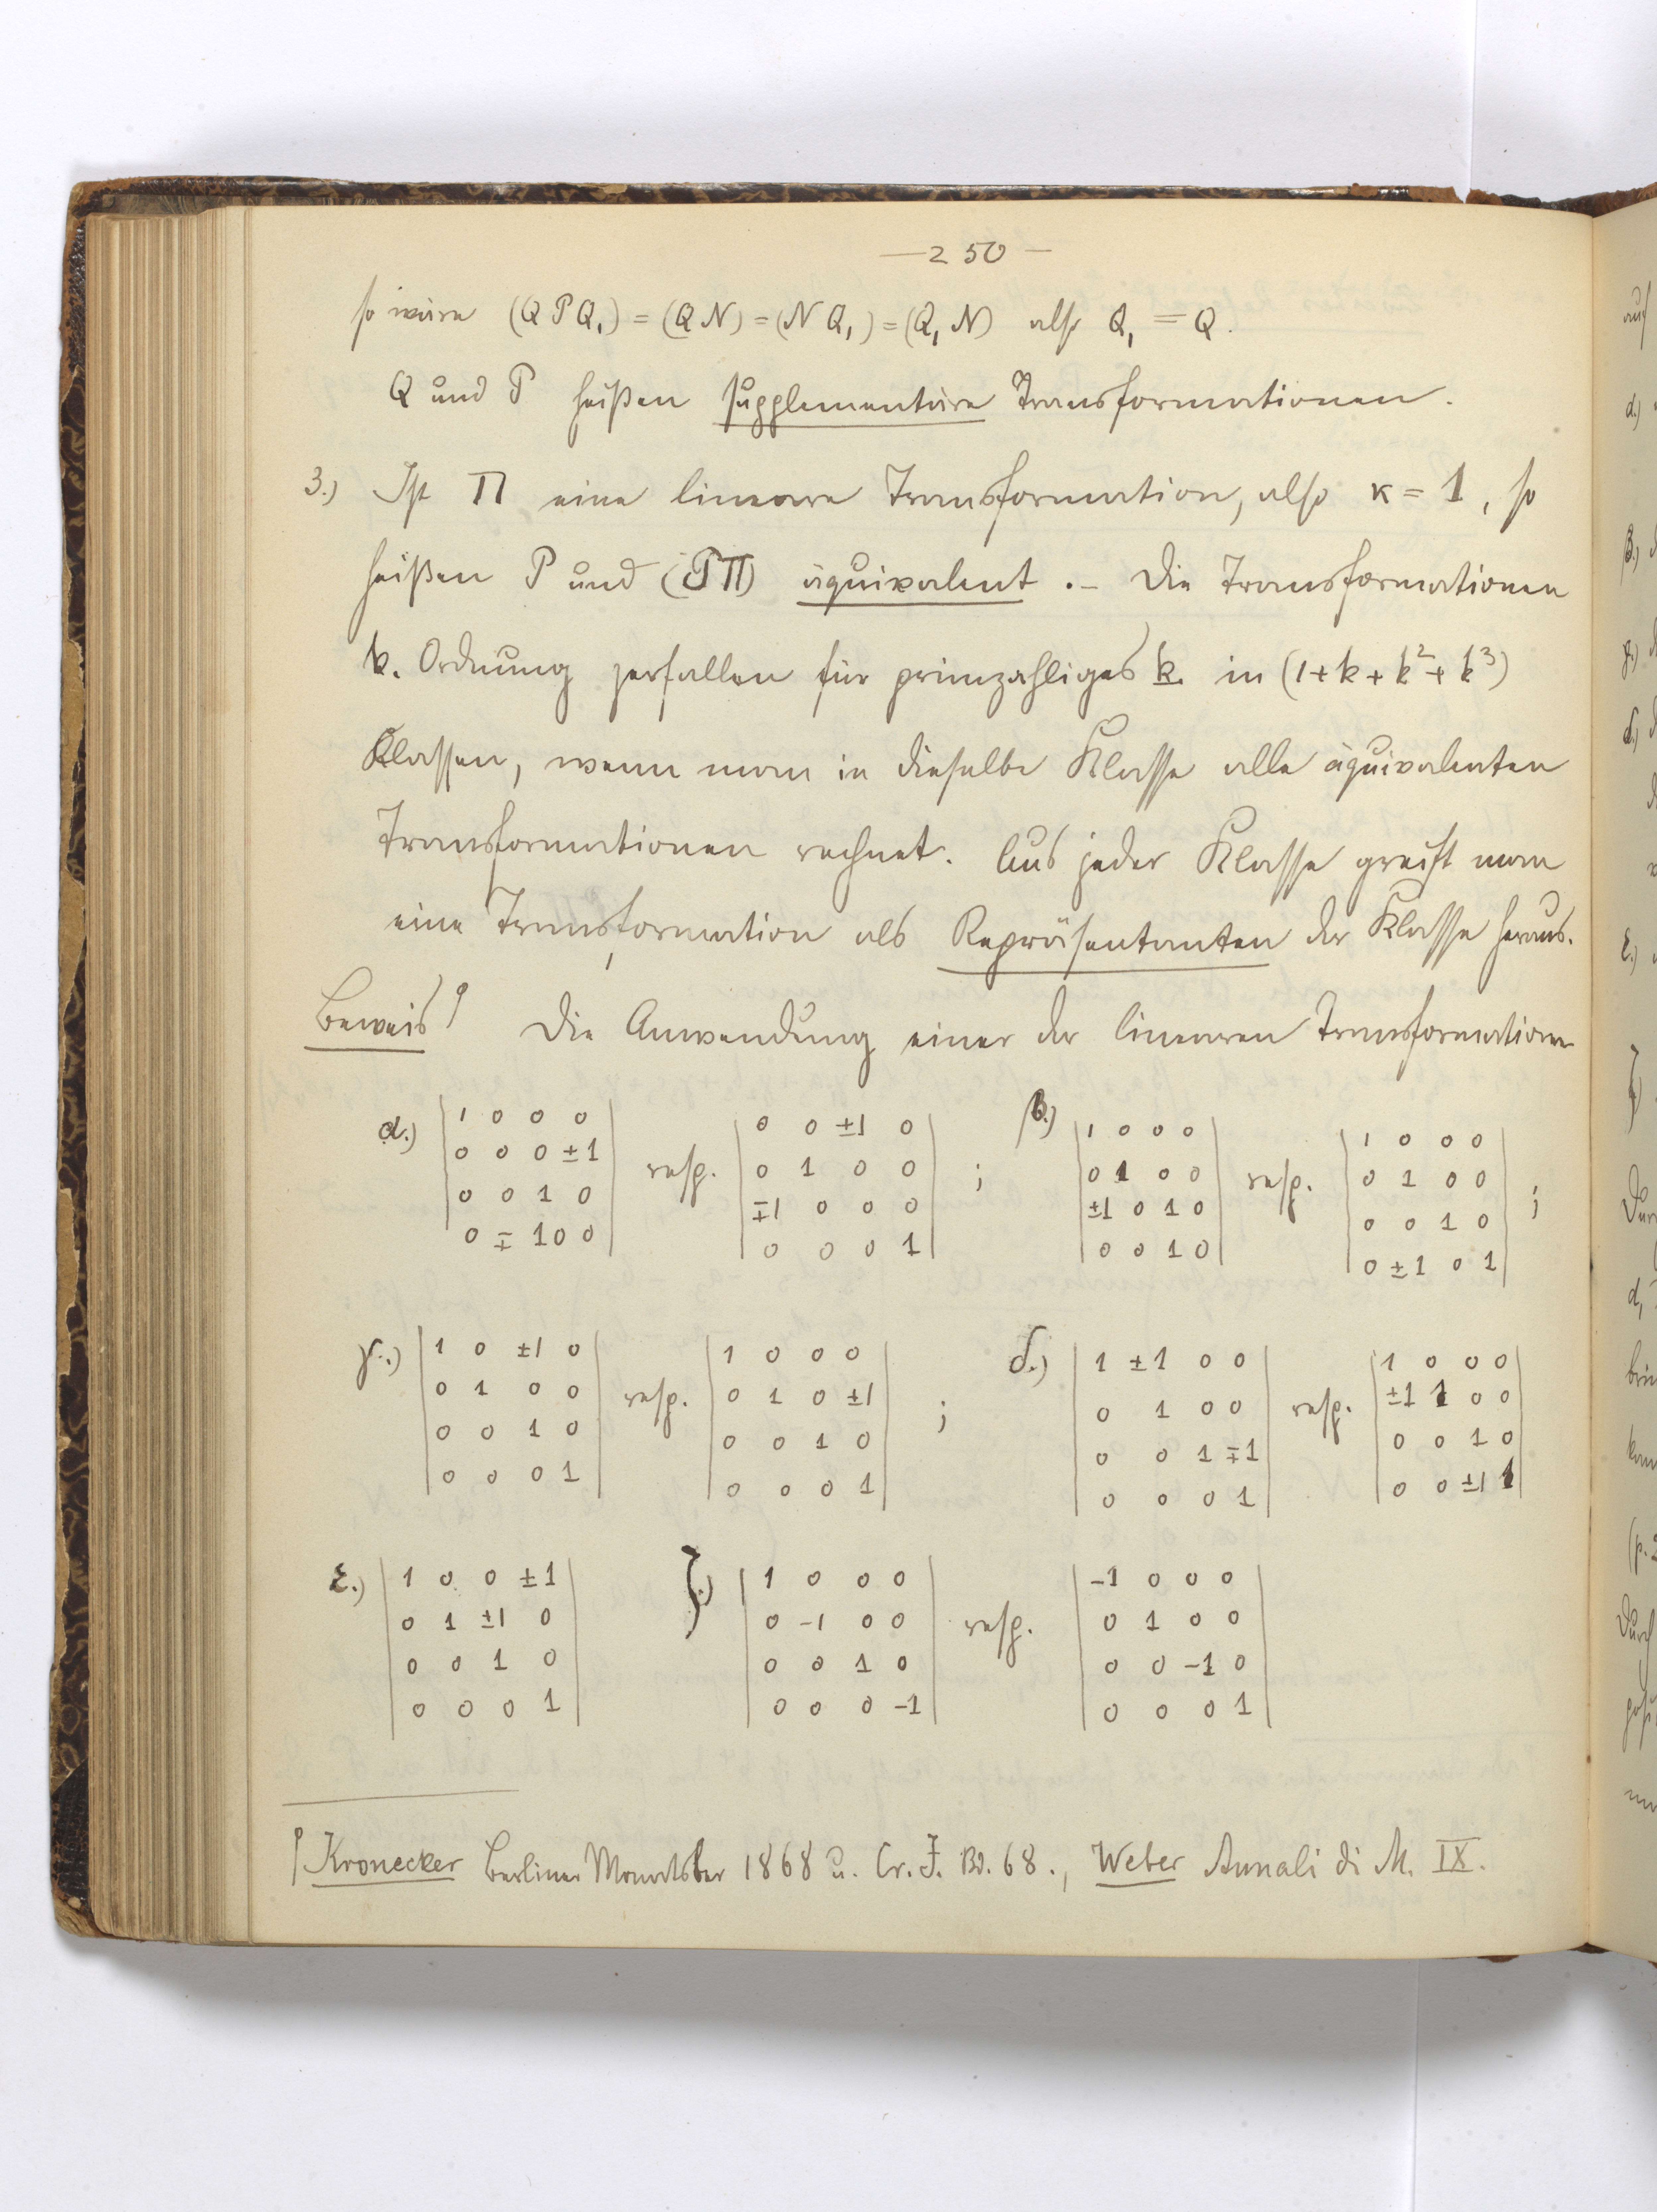 — 250 —
so wäre (QPQ₁) = (QN) = (NQ₁) = (Q₁N) also Q₁ = Q.
Q und P heißen supplementäre Transformationen.
3.) Ist Π eine lineare Transformation, also κ = 1, so
heißen P und (PΠ) äquivalent. – Die Transformationen
k. Ordnung zerfallen für primzahliges k in (1+k+k²+k³)
Klassen, wenn man in dieselbe Klasse alle äquivalenten
Transformationen rechnet. Aus jeder Klasse greift man
eine Transformation als Repräsentanten der Klasse heraus.
Beweis Die Anwendung einer der linearen Transformationen
α.) | 1 0 0 0 | resp. | 0 0 ±1 0 | ; β.) | 1 0 0 0 | resp. | 1 0 0 0 | ;
| 0 0 0 ±1 | | 0 1 0 0 | | 0 1 0 0 | | 0 1 0 0 |
| 0 0 1 0 | | ∓1 0 0 0 | | ±1 0 1 0 | | 0 0 1 0 |
| 0 ∓1 0 0 | | 0 0 0 1 | | 0 0 1 0 | | 0 ±1 0 1 |
γ.) | 1 0 ±1 0 | resp. | 1 0 0 0 | ; δ.) | 1 ±1 0 0 | resp. | 1 0 0 0 |
| 0 1 0 0 | | 0 1 0 ±1 | | 0 1 0 0 | | ±1 1 0 0 |
| 0 0 1 0 | | 0 0 1 0 | | 0 0 1 ∓1 | | 0 0 1 0 |
| 0 0 0 1 | | 0 0 0 1 | | 0 0 0 1 | | 0 0 ±1 1 |
ε.) | 1 0 0 ±1 | ζ.) | 1 0 0 0 | resp. | -1 0 0 0 |
| 0 1 ±1 0 | | 0 -1 0 0 | | 0 1 0 0 |
| 0 0 1 0 | | 0 0 1 0 | | 0 0 -1 0 |
| 0 0 0 1 | | 0 0 0 -1 | | 0 0 0 1 |
Kronecker Berliner Monatsber 1868 u. Cr. J. Bd. 68., Weber Annali di M. IX.